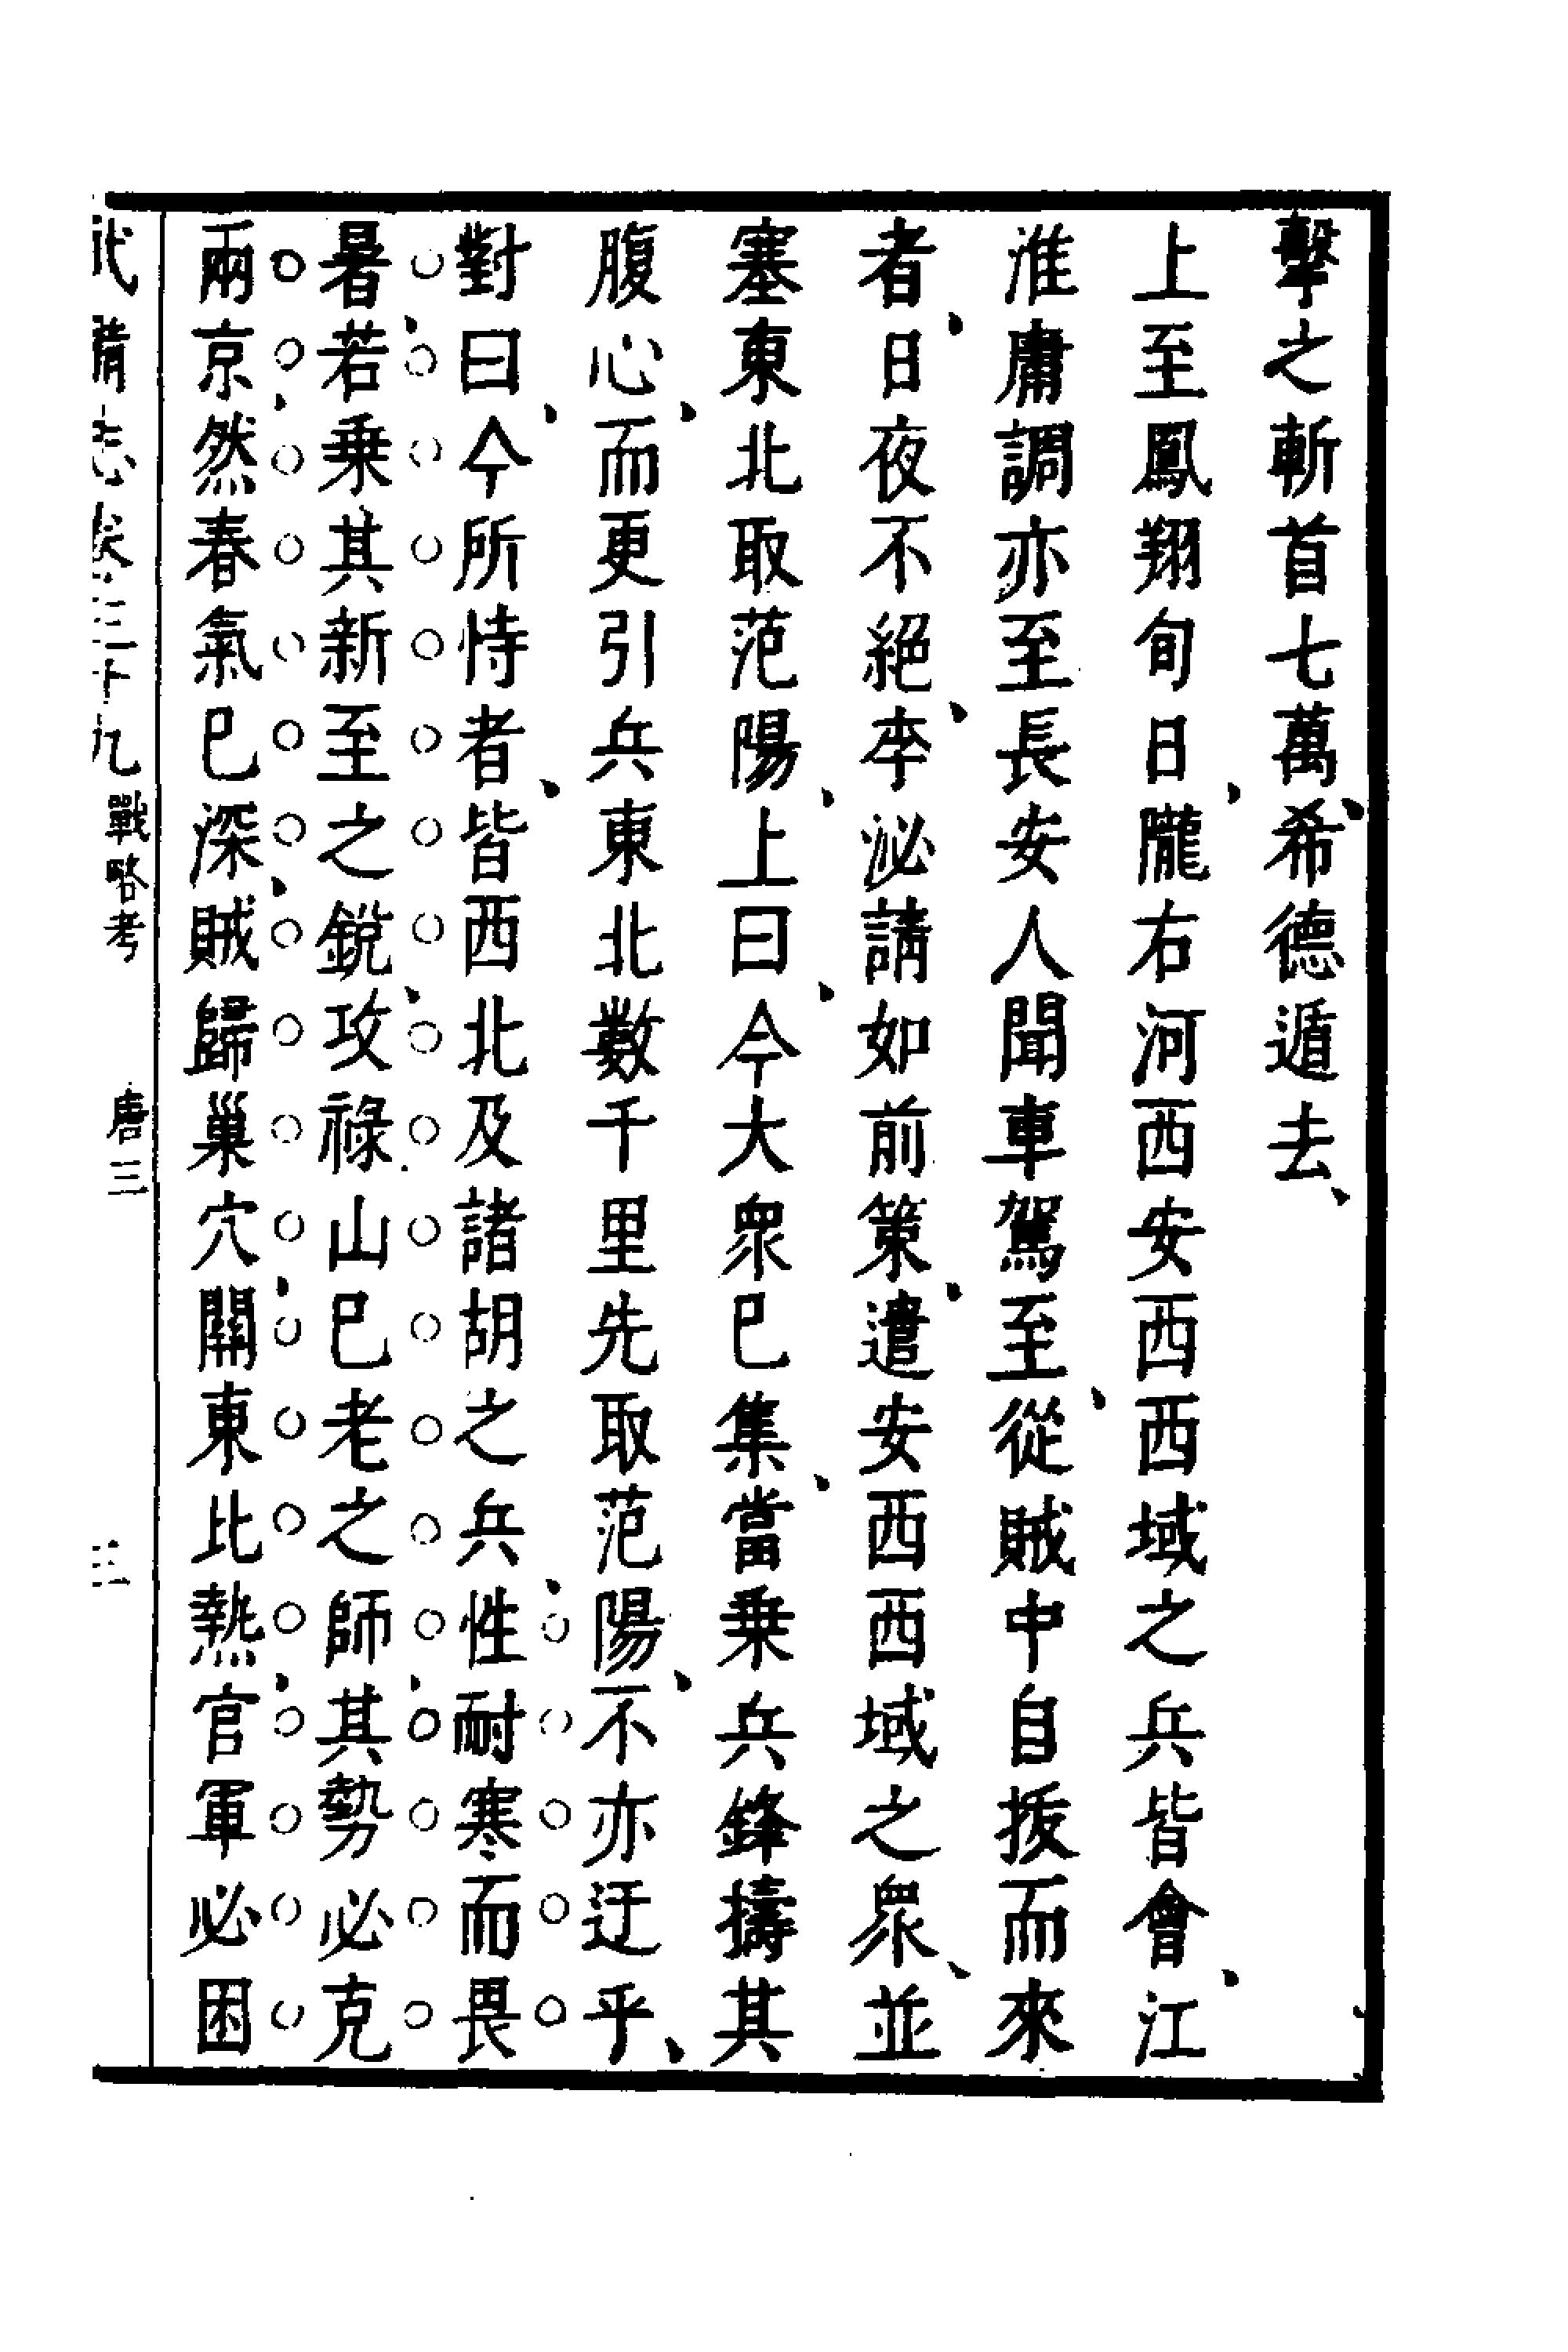 擊之斬首七萬希德遁去
上至鳳翔旬日隴右河西安西西域之兵皆會江
淮庸調亦至長安人聞車駕至從賊中自拔而來
者日夜不絕李泌請如前策遣安西西域之眾並
塞東北取范陽上曰今大眾巳集當乗兵鋒擣其
腹心而更引兵東北數千里先取范陽不亦迂乎
對曰今所恃者皆西北及諸胡之兵性耐寒而畏
暑若乗其新至之銳攻祿山巳老之師其勢必克
兩京然春氣巳深賊歸巢穴關東比熱官軍必困
武備志卷三十九 戰略考 唐三 三